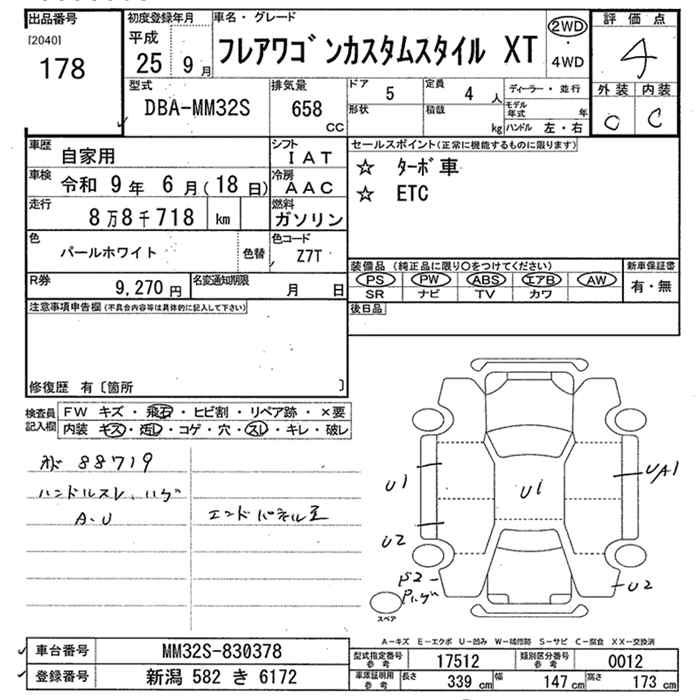 出品番号
[2040]
178
初度登録年月
平成
25 9月
車名・グレード
フレアワゴンカスタムスタイル XT
2WD
・
4WD
評価点
4
外装 内装
C C
型式
DBA-MM32S
排気量
658
CC
ドア
5
定員
4 人
形状
積載
kg
ディーラー・並行
モデル年式 年
ハンドル 左・右
車歴
自家用
シフト
IAT
車検
令和 9年 6月(18日)
冷房
AAC
走行
8万8千718 km
燃料
ガソリン
色
パールホワイト
色替
色コード
Z7T
R券
9,270 円
名変通知期限
月 日
セールスポイント(正常に機能するものに限ります)
☆ ターボ車
☆ ETC
装備品 (純正品に限り○をつけてください)
PS PW ABS エアB AW
SR ナビ TV カワ
新車保証書
有・無
後日品
注意事項申告欄(不具合内容等は具体的に記入して下さい)
修復歴 有〔箇所 〕
検査員
記入欄
FW キズ・飛石・ヒビ割・リペア跡・×要
内装 キズ・汚れ・コゲ・穴・スレ・キレ・破レ
88719
ハンドルスレ、ハゲ
A.U
エンドパネルU
U1
U2
U1
U/A1
U2
P2
P.ハゲ
スペア
A-キズ E-エクボ U-凹み W-補修跡 S-サビ C-腐食 XX-交換済
車台番号
MM32S-830378
登録番号
新潟 582 き 6172
型式指定番号
参考
17512
類別区分番号
参考
0012
車庫証明用
参考
長さ
339 cm
幅
147 cm
高さ
173 cm